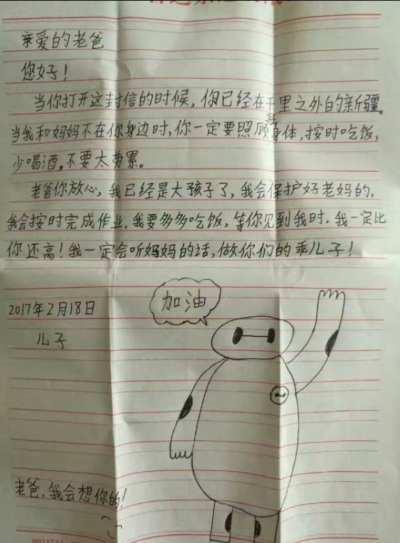 亲爱的老爸
您好！
当你打开这封信的时候，你已经在千里之外的新疆。
当我和妈妈不在你身边时，你一定要照顾身体，按时吃饭，
少喝酒，不要太劳累。
老爸你放心，我已经是大孩子了，我会保护好老妈的，
我会按时完成作业，我要多多吃饭，等你见到我时，我一定比
你还高！我一定会听妈妈的话，做你们的乖儿子！
2017年2月18日
儿子
加油
老爸，我会想你的！